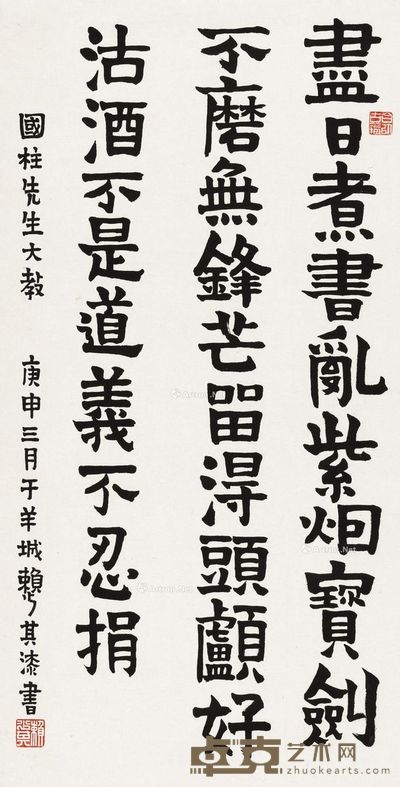 盡日煮書亂紫烟寶劍
不磨無鋒芒留得頭顱好
沽酒不是道義不忍捐
國柱先生大教 庚申三月于羊城賴少其漆書
卓克艺术网
zhuokearts.com